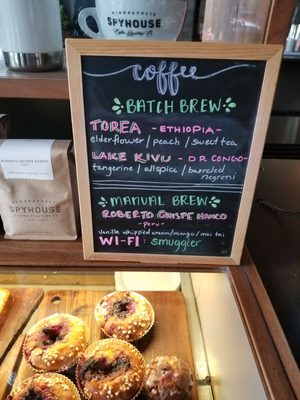 MINNEAPOLIS
SPYHOUSE
coffee
BATCH BREW
TOREA - ETHIOPIA -
elderflower / peach / sweet tea
LAKE KIVU - DR CONGO -
tangerine / allspice / barreled
negroni
MANUAL BREW.
ROBERTO QUISPE MANCO
- PERU -
vanilla whipped cream / mango / mai tai
WI-FI: smuggler
ROBERTO QUISPE MANCO
SPYHOUSE